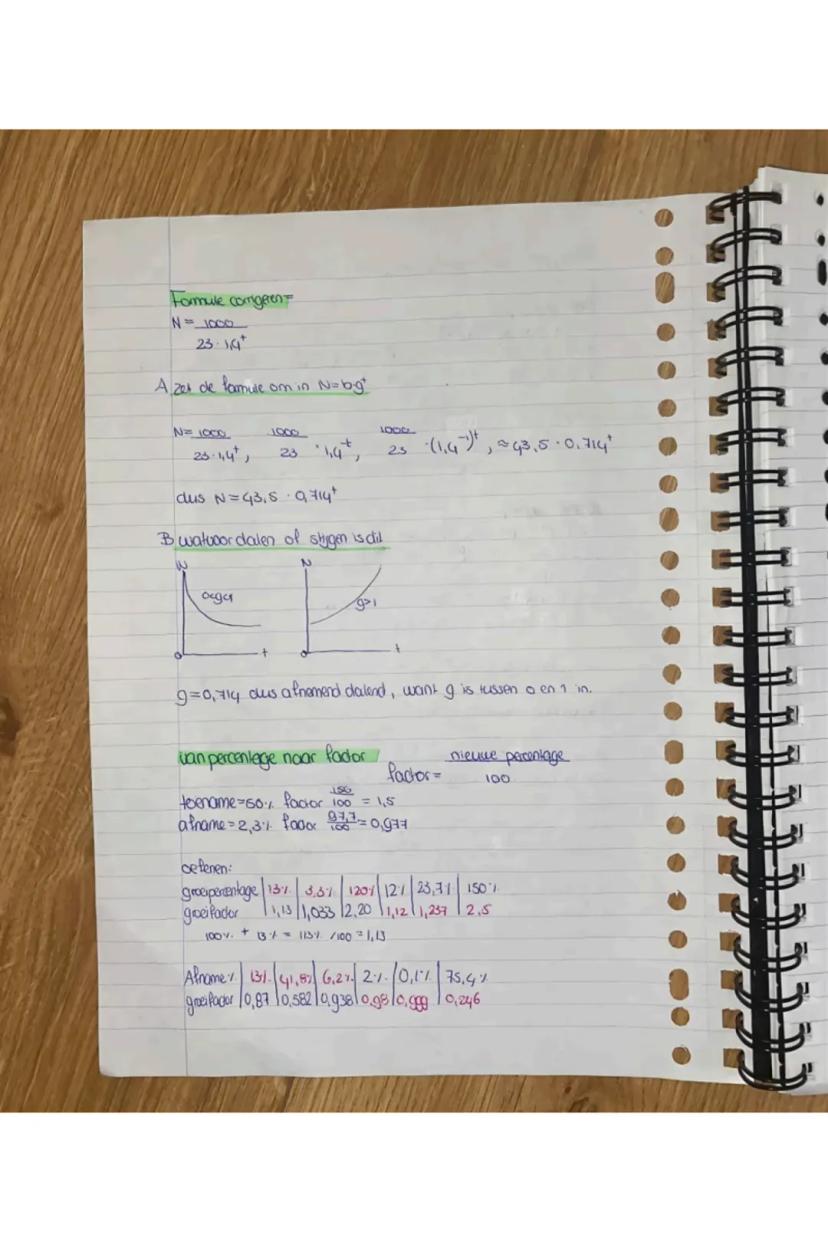 Formule corrigeren=
N= 1000
23·1,4^t
A zet de formule om in N=b·g^t
N= 1000 1000 1000
23·1,4^t, 23 ·1,4^-t, 23 ·(1,4^-1)^t, ≈43,5·0,714^t
dus N=43,5·0,714^t
B watvoor dalen of stijgen is dit
N N
0<g<1 g>1
0 t 0 t
g=0,714 dus afnemend dalend, want g is tussen 0 en 1 in.
van percentage naar factor nieuwe percentage
factor= 100
150
toename=50% factor 100 = 1,5
afname=2,3% factor 97,7/100=0,977
oefenen:
groeipercentage 13% 3,3% 120% 12% 23,7% 150%
groeifactor 1,13 1,033 2,20 1,12 1,237 2,5
100% + 13% = 113% /100=1,13
Afname% 13% 41,8% 6,2% 2% 0,1% 75,4%
groeifactor 0,87 0,582 0,938 0,98 0,999 0,246